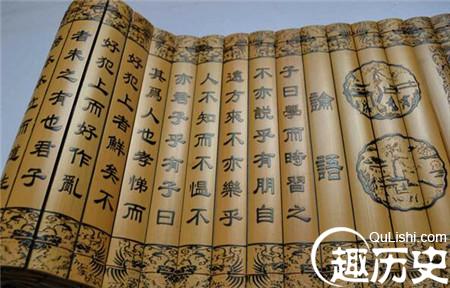 論語
子曰學而時習之
不亦說乎有朋自
遠方來不亦樂乎
人不知而不慍不
亦君子乎有子曰
其爲人也孝悌而
好犯上者鮮矣不
好犯上而好作亂
者未之有也君子
QuLishi.com
趣历史